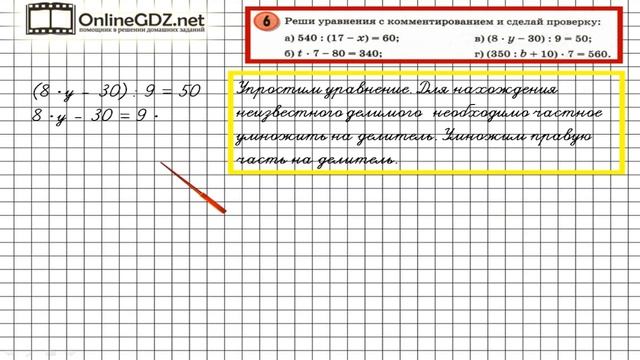 OnlineGDZ.com
помощник в решении домашних заданий
6 Реши уравнения с комментированием и сделай проверку:
а) 540 : (17 – x) = 60; в) (8 · y – 30) : 9 = 50;
б) t · 7 – 80 = 340; г) (350 : b + 10) · 7 = 560.
(8 · y – 30) : 9 = 50
8 · y – 30 = 9 ·
Упростим уравнение. Для нахождения
неизвестного делимого необходимо частное
умножить на делитель. Умножим правую
часть на делитель.